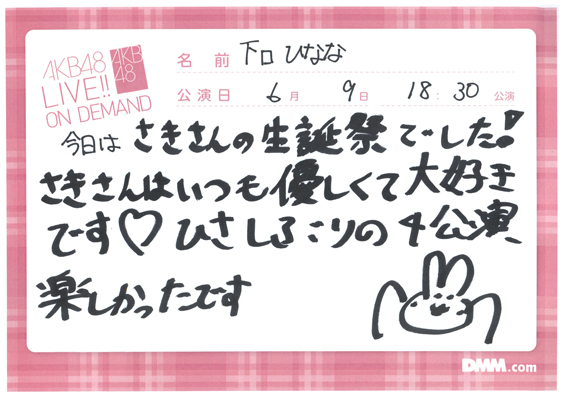 AKB48
LIVE!!
ON DEMAND
AKB
48
名前 下口ひなな
公演日 6月 9日 18:30 公演
今日は さきさんの生誕祭でした!
さきさんはいつも優しくて大好き
です♡ ひさしぶりの4公演、
楽しかったです
DMM.com